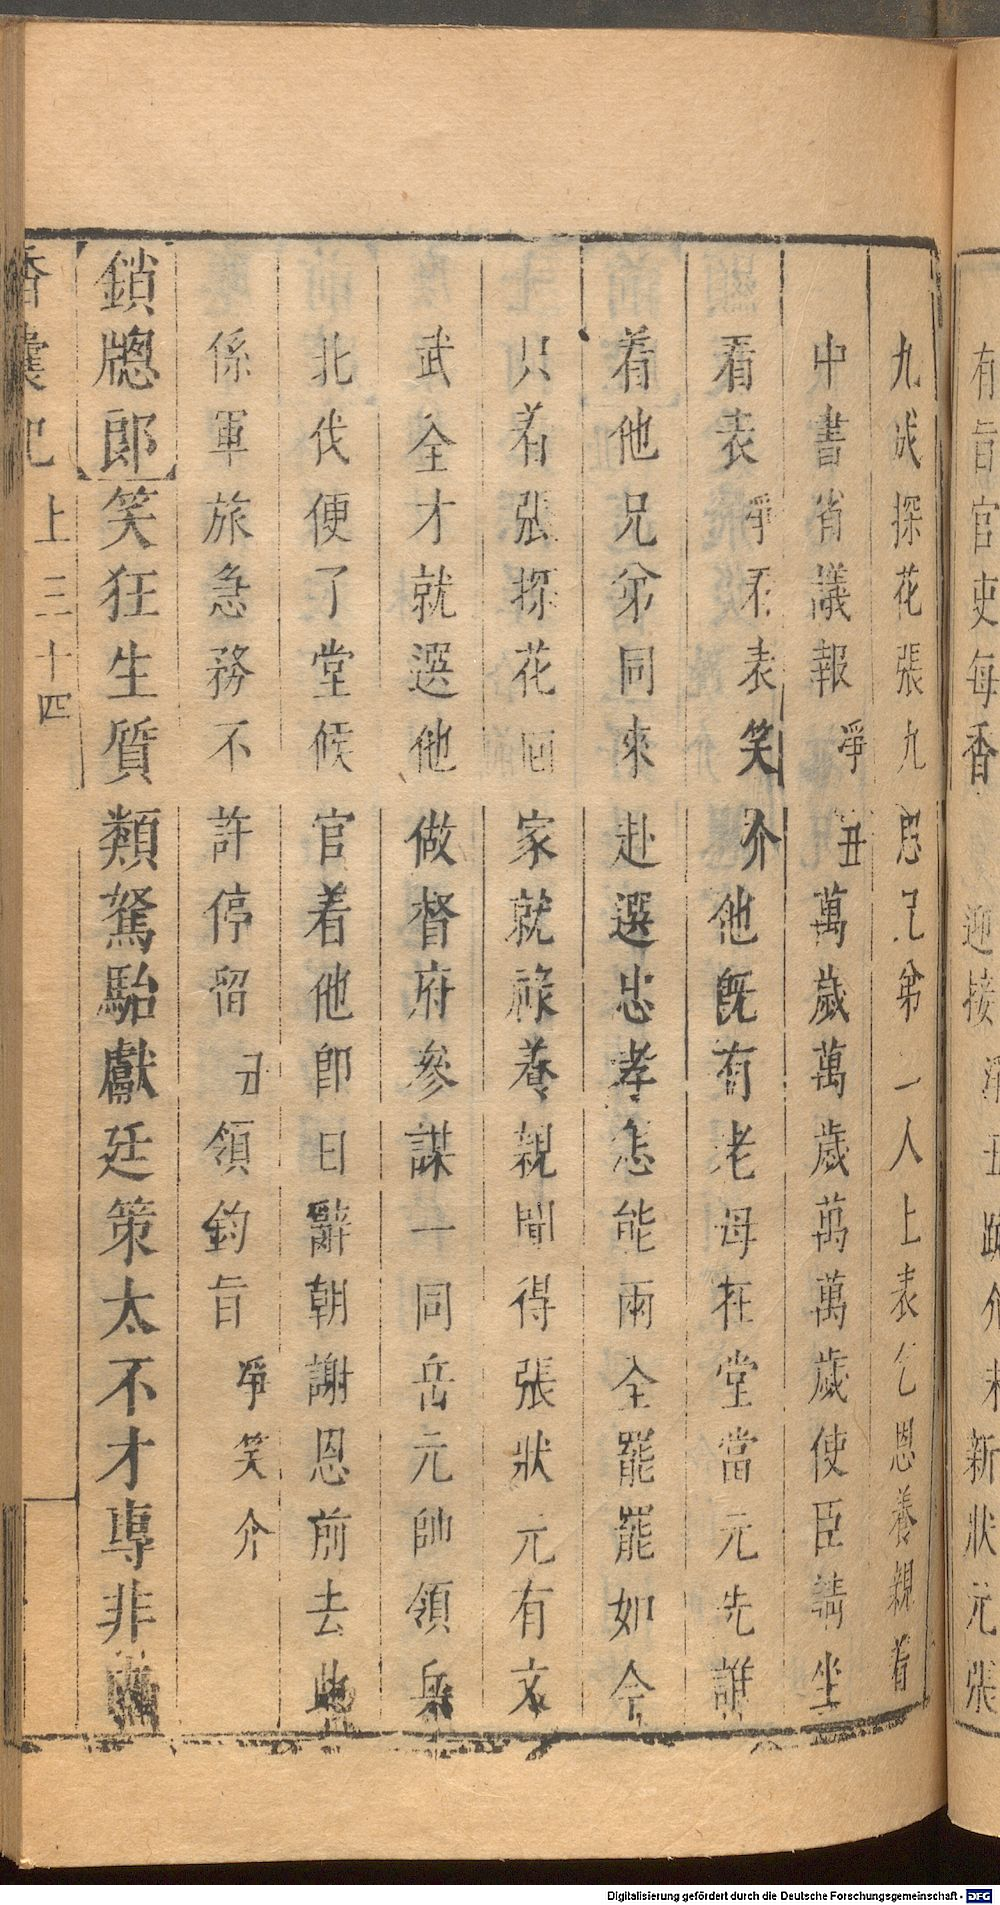 有旨官吏每香 迎接 淨丑跪介末新狀元張
九成探花張九思兄弟一人上表乞恩養親着
中書省議報 淨丑萬歲萬歲萬萬歲使臣請坐
看表 淨看表笑介他既有老母在堂當元先誰
着他兄弟同來赴選忠孝怎能兩全罷罷如今
只着張探花回家就祿養親聞得張狀元有文
武全才就選他做督府參謀一同岳元帥領兵
北伐便了堂候官着他即日辭朝謝恩前去此
係軍旅急務不許停留 丑領鈞旨 淨笑介
鎖牕郎 笑狂生質類駑駘獻廷策太不才專非
香囊記 上 三十四
Digitalisierung gefördert durch die Deutsche Forschungsgemeinschaft - DFG